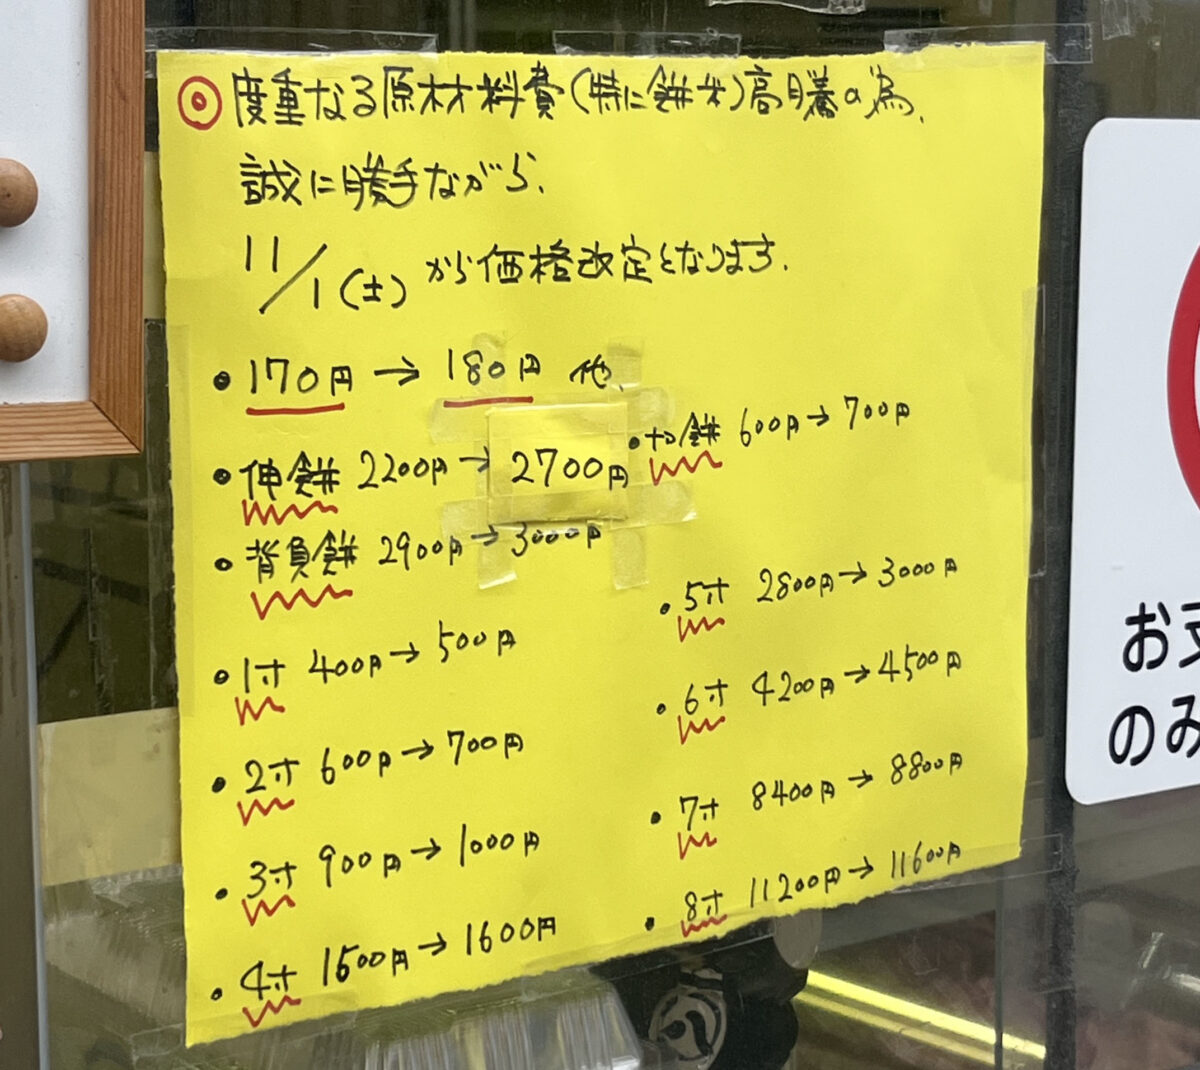 ◎度重なる原材料費(特に餅米)高騰の為、
誠に勝手ながら、
11/1(土)から価格改定となります。
・170円→180円 他、
・伸餅 2200円→2700円
・切餅 600円→700円
・背負餅 2900円→3000円
・1寸 400円→500円
・2寸 600円→700円
・3寸 900円→1000円
・4寸 1500円→1600円
・5寸 2800円→3000円
・6寸 4200円→4500円
・7寸 8400円→8800円
・8寸 11200円→11600円
お支
のみ